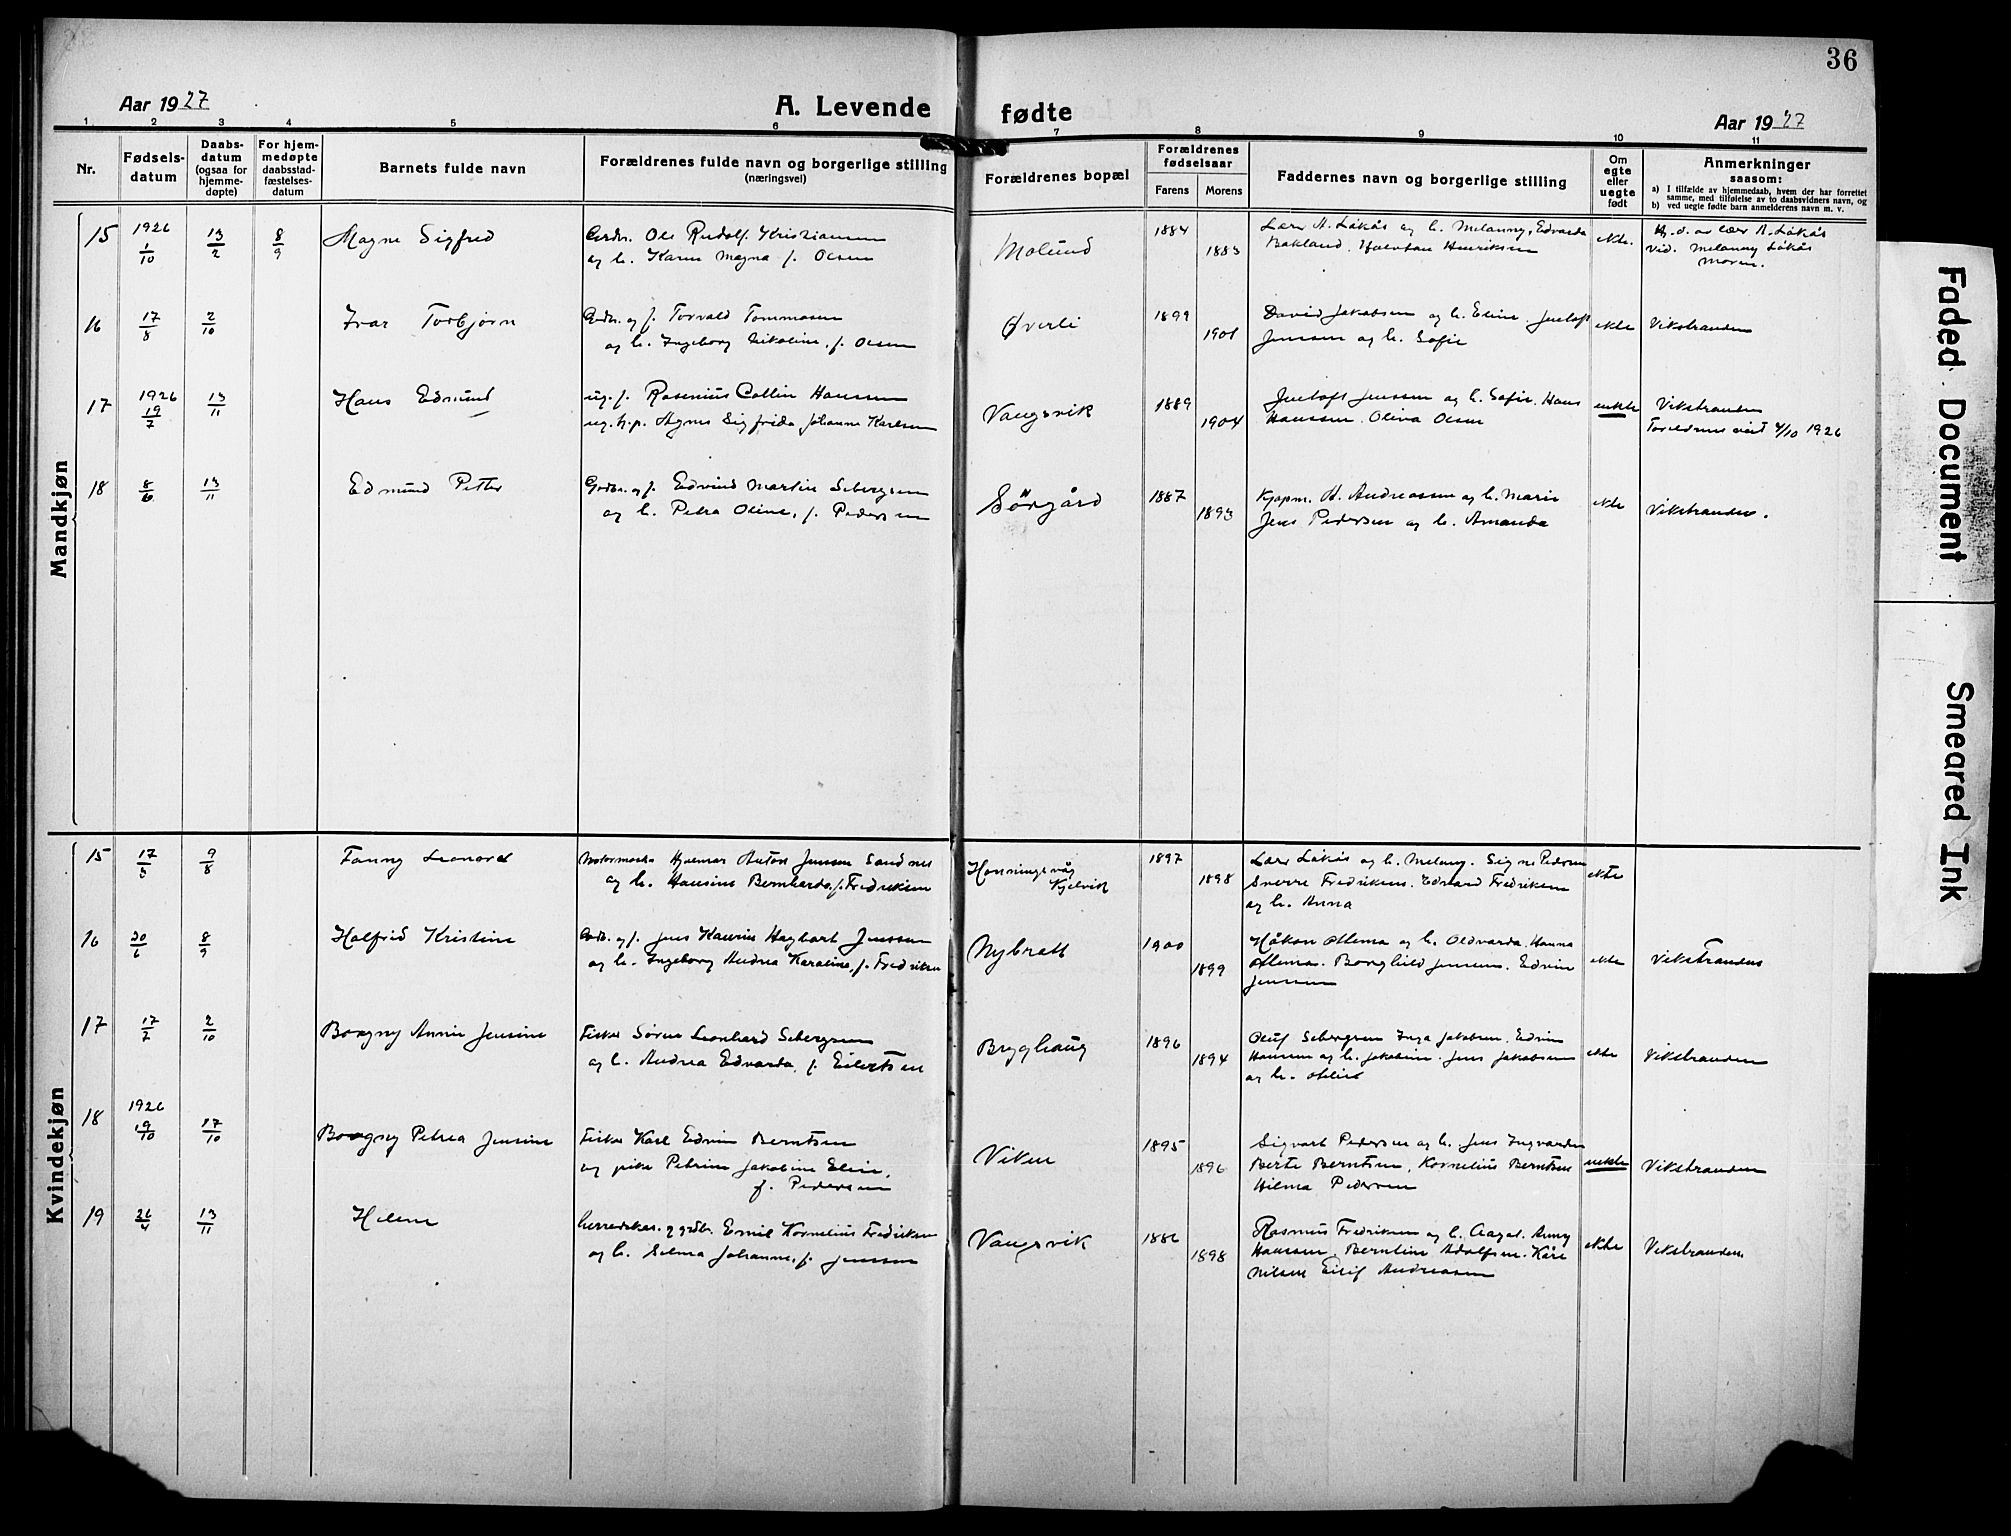 36
Aar 1927
A. Levende
fødte
Aar 1927
1 2 3 4 5 6
7 8 9 10 11
Nr.
Fødsels-
datum
Daabs-
datum
(ogsaa for
hjemme-
døpte)
For hjem-
medøpte
daabsstad-
fæstelses-
datum
Barnets fulde navn
Forældrenes fulde navn og borgerlige stilling
(næringsvei)
Forældrenes bopæl
Forældrenes
fødselsaar
Farens
Morens
Faddernes navn og borgerlige stilling
Om
egte
eller
uegte
født
Anmerkninger
saasom:
a) I tilfælde av hjemmedaab, hvem der har forrettet
samme, med tilføielse av to daabsvidners navn, og
b) ved uegte fødte barn anmelderens navn m. v.
Mandkjøn
15 1926 1/10 13/2 8/9 Magne Sigfred
Grdbr. Ole Rudolf Kristiansen
og h. Karen Magna f. Olsen
Molund 1884 1883
Lær A. Løkås og h. Melanny, Edvarda
Bakland. Halvdan Henriksen
ekte.
Hj. d. av lær A. Løkås
Vid. Melanny Løkås
Moren.
16 17/8 2/10 Ivar Torbjørn
Grdbr. og f. Torvald Tommasen
og h. Ingeborg Nikoline, f. Olsen
Øverli 1899 1901
David Jakobsen og h. Eline. Juelaft
Jenssen og h. Sofie
ekte Vikstranden
17 1926 19/7 13/11 Hans Edmund
ug. f. Rasenius Collin Hansen
ug. p. Agnes Sigfrida Johanne Karlsen
Vangsvik 1889 1904
Juelaft Jenssen og h. Sofie. Hans
Hanssen. Oliva Olsen
uekte Vikstranden
Foreldrene viet 4/10 1926
18 8/6 13/11 Edmund Petter
Grdbr. og f. Edvind Martin Sebergsen
og h. Petra Oline, f. Pedersen
Sørgård 1887 1893
Kjøpm. A. Andreassen og h. Marie
Jens Pedersen og h. Amanda
ekte Vikstranden.
Kvindekjøn
15 17/5 9/8 Fanny Leonora
Hjalmar Anton Jensen Sandnes
og h. Hansine Bernharda, f. Fredriksen
Honningsvåg
Kjelvik
1897 1898
Lær Løkås og h. Melany. Signe Pedersen
Sverre Fredriksen. Edvard Fredriksen
og h. Anna
ekte
16 20/6 8/9 Halfrid Kristine
Grdb. og f. Jens Kaurin Hagbart Jenssen
og h. Ingeborg Andrea Karoline, f. Fredriksen
Nybrott 1900 1899
Håkon Ottema og h. Oldvarda. Hanna
Ottema. Borghild Jenssen. Edvin
Jenssen
ekte Vikstranden
17 17/7 2/10 Borgny Annie Jensine
Fisker Søren Leonhard Sebergsen
og h. Andrea Edvarda, f. Eilertsen
Bryghaug 1896 1894
Oluf Sebergsen Inga Jakobsen. Edvin
Hansen og h. Jakobine. Jens Jakobsen
og h. Otilie
ekte Vikstranden
18 1926 19/10 17/10 Borgny Petrea Jensine
Fisker Karl Edvin Berntsen
og pike Petrine Jakobine Elise,
f. Pedersen
Viken 1895 1896
Sigvart Pedersen og h. Jens Ingvardsen
Berte Berntsen, Kornelius Berntsen
Hilma Pedersen
uekte Vikstranden
19 26/4 13/11 Helene
herredskas. og grdbr. Emil Kornelius Fredriksen
og h. Selma Johanne, f. Jenssen
Vangsvik 1886 1898
Rasmus Fredriksen og h. Aagot. Anny
Hanssen. Berntine Adolfsen. Kåre
Nilsen Eilif Andreasen
ekte Vikstranden
Faded Document
Smeared Ink